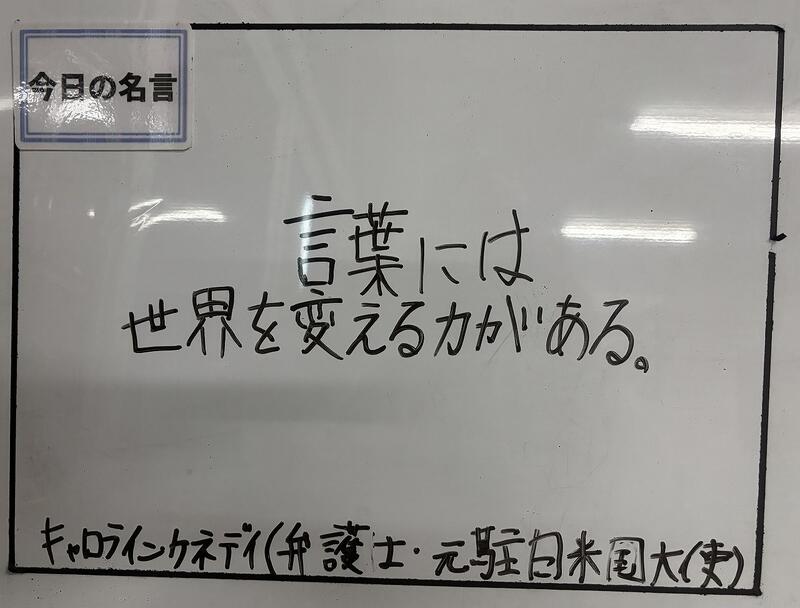 今日の名言
言葉には
世界を変える力がある。
キャロラインケネディ(弁護士・元駐日米国大(吏)